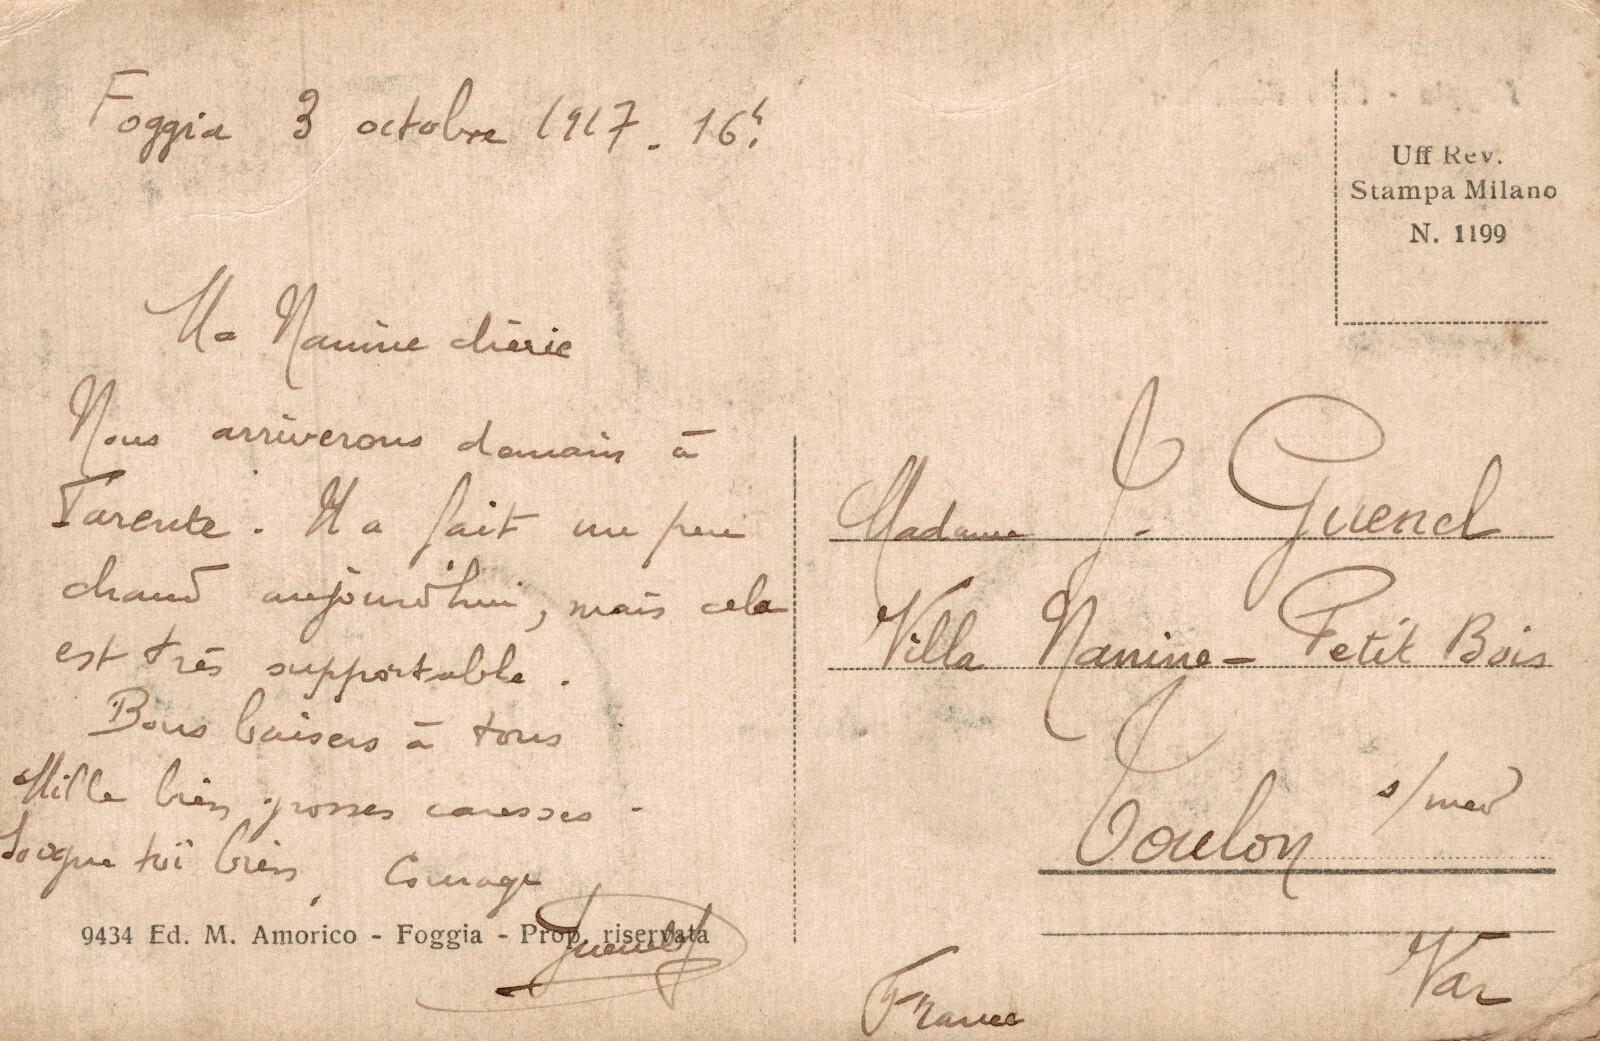 Foggia 3 octobre 1917. 16h
Uff Rev.
Stampa Milano
N. 1199
Ma Nanine chérie
Nous arriverons demain à
Tarente. Il a fait un peu
chaud aujourd'hui, mais cela
est très supportable.
Bons baisers à tous
Mille bien grosses caresses.
Soigne toi bien, Courage
Guenel
9434 Ed. M. Amorico - Foggia - Prop. riservata
Madame J. Guenel
Villa Nanine - Petit Bois
Toulon s/mer
Var
France